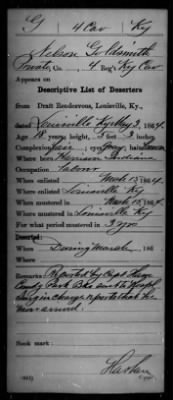 G 4 Cav Ky
Nelson Goldsmith
Private, Co. , 4 Reg't Ky Cav
Appears on
Descriptive List of Deserters
from Draft Rendezvous, Louisville, Ky.,
dated Louisville Ky May 3, 1864
Age 18 years; height 5 feet 3 inches
Complexion Fair; eyes Gray; hair
Where born Harrison Indiana
Occupation Labour
When enlisted March 15, 1864
Where enlisted Louisville Ky
When mustered in March 15, 1864
Where mustered in Louisville Ky
For what period mustered in 3 yrs
Deserted:
When During March, 186
Where
Remarks: Reported by Capt
in charge reports that he
never arrived.
Book mark: